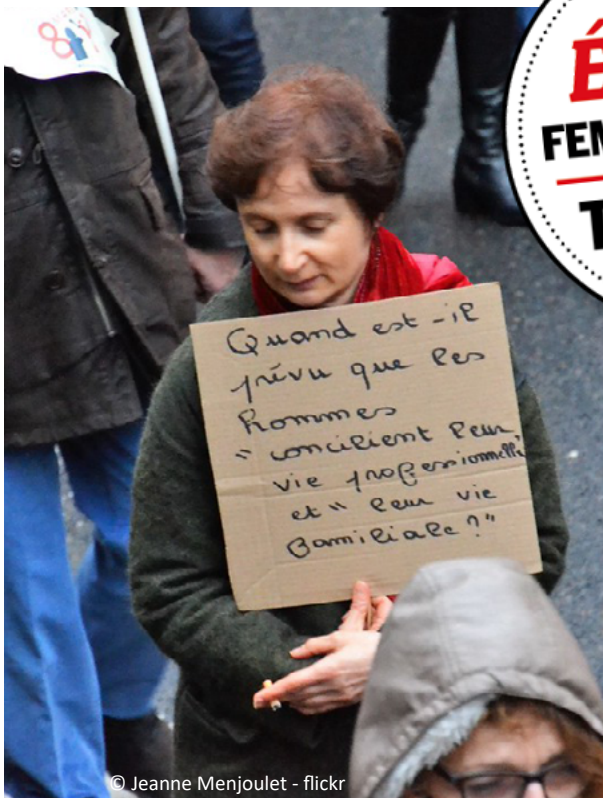 Quand est-il
prévu que les
hommes
"concilient leur
vie professionnelle"
et "leur vie
familiale?"
8
É
FEM
T
© Jeanne Menjoulet - flickr